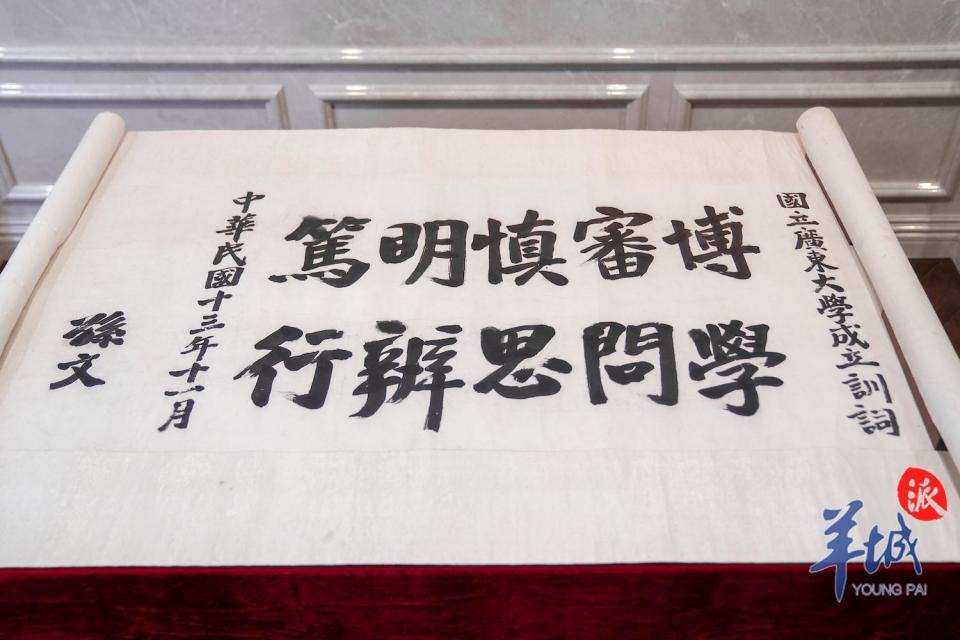 國立廣東大學成立訓詞
博學
審問
慎思
明辨
篤行
中華民國十三年十一月
孫文
羊城派
YOUNG PAI